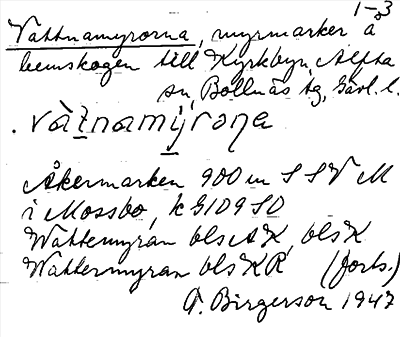 1-3
Vattnamyrorna, myrmarker å
hemskogen till Kyrkbyn, Alfta
sn, Bollnäs tg, Gävl. l.
. vàt̠namy̠rọna
Åkermarken 900 m SSV M
i Mossbo, k G109 SO
Wattemyran bls AK, bls K
Wattermyran bls KR (forts.)
G. Birgerson 1947